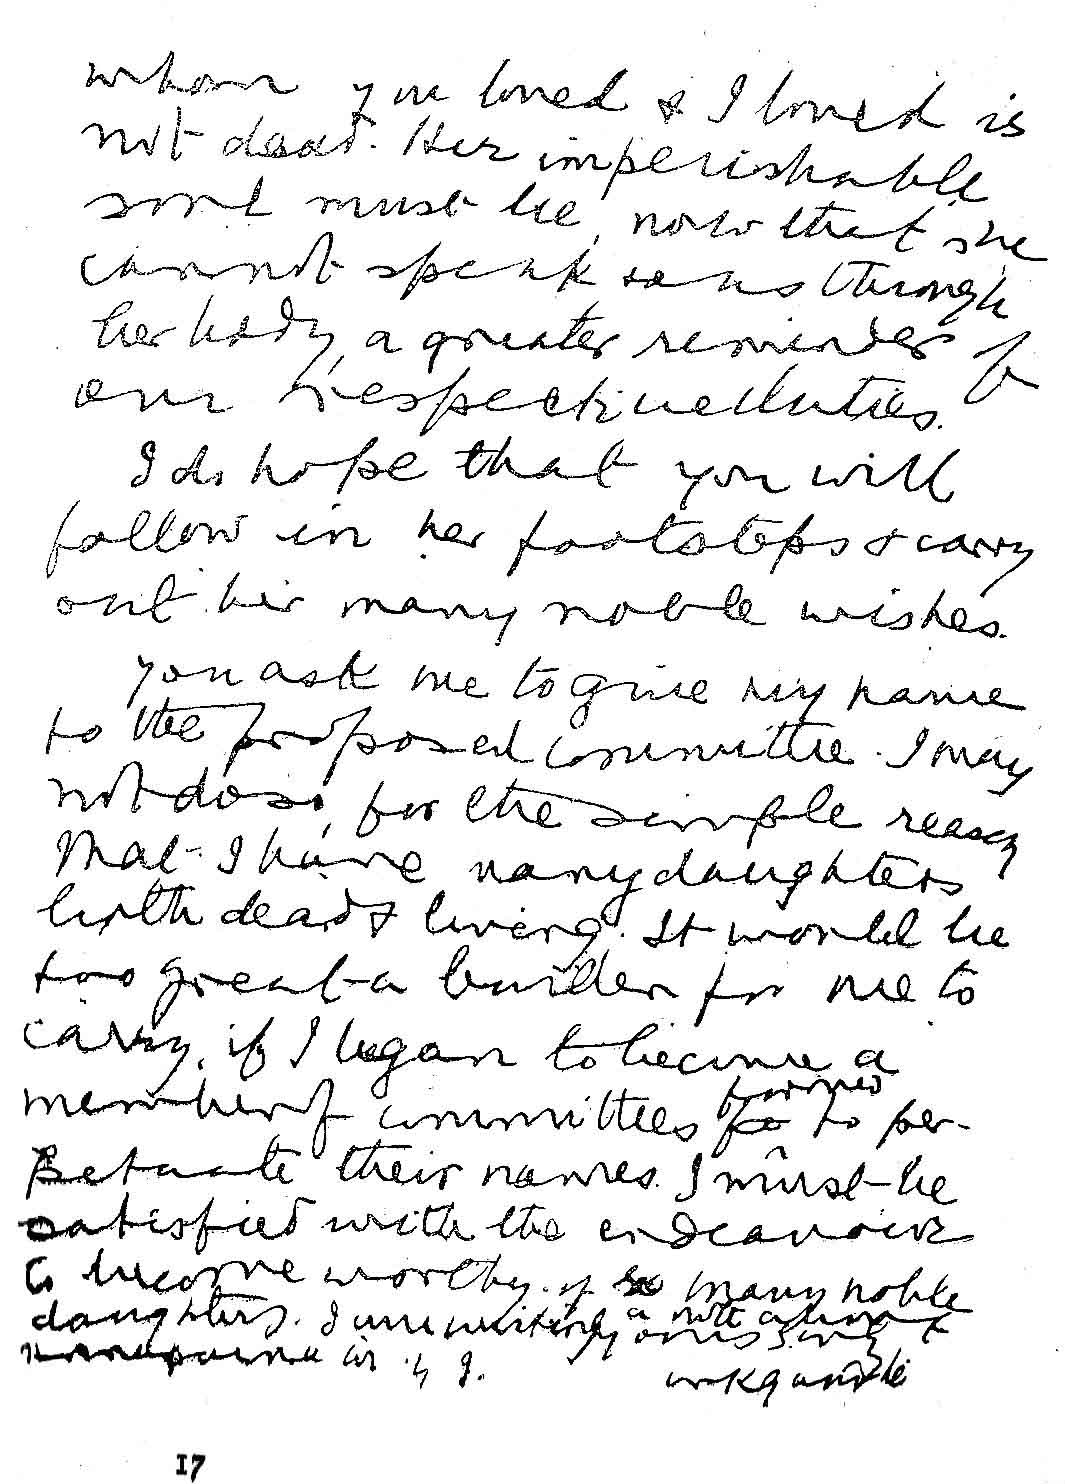 whom you loved & I loved is
not dead. Her imperishable
soul must be, now that she
cannot speak to us through
her body, a greater reminder of
our respective duties.
I do hope that you will
follow in her footsteps & carry
out her many noble wishes.
You ask me to give my name
to the proposed committee. I may
not do so, for the simple reason
that I have many daughters
both dead & living. It would be
too great a burden for me to
carry, if I began to become a
member of committees formed to per-
petuate their names. I must be
satisfied with the endeavour
to become worthy of so many noble
daughters. I am writing a note about
Annapurna in Y. I.
Yours sincly
MKGandhi
17